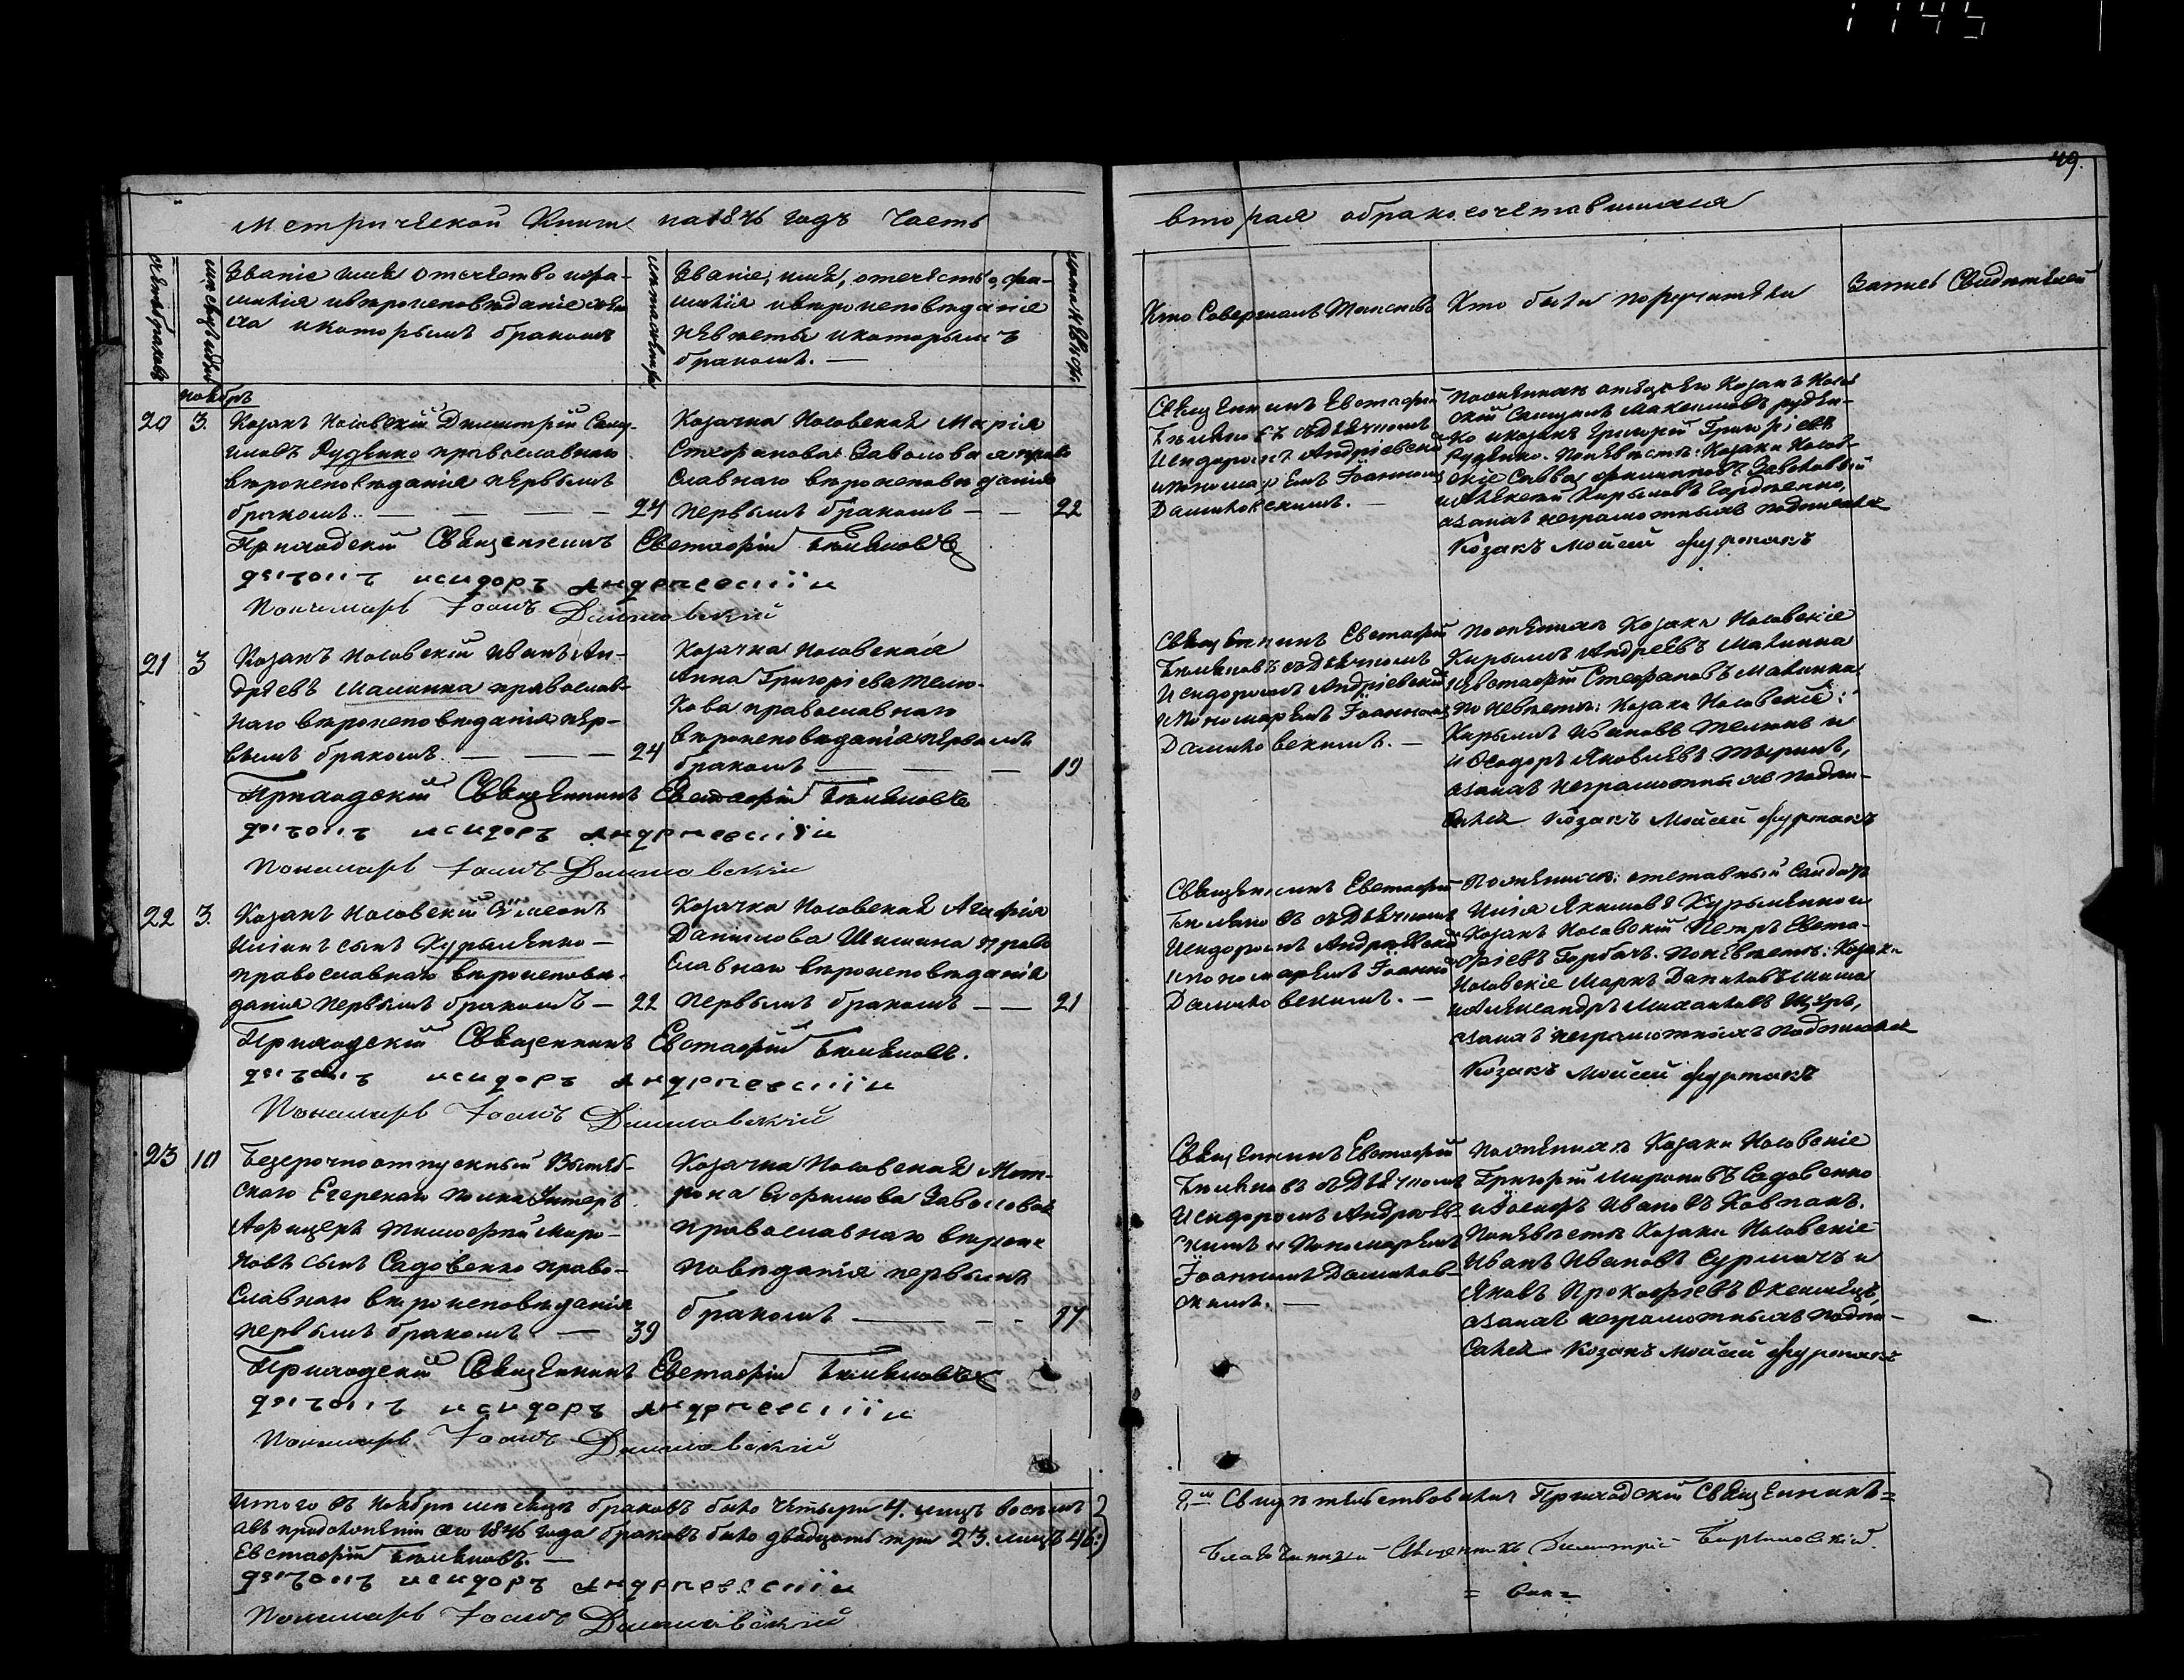 1145
49.
Метрической Книги на 1846 годъ Часть
вторая обракосочетавшихся
Званіе имя отечество и фа-
милія и вѣроисповѣданіе жени-
ха и которымъ бракомъ
Званіе, имя, отечество, фа-
милія и вѣроисповѣданіе
невѣсты и которымъ
бракомъ. —
Кто Совершалъ Таинство
Кто были поручители
Запись Свидѣтелей
ноябрь
20 3. Козакъ Носовскій Димитрій Саму-
иловъ Руденко православнаго
вѣроисповѣданія первымъ
бракомъ. — — — — 24
Козачка Носовская Марія
Стефанова Заволова право
славнаго вѣроисповѣданія
первымъ бракомъ — — 22
Священникъ Евстафій
Бѣляновъ съ Дьячкомъ
Исидоромъ Андріевски
и пономаремъ Іоанномъ
Даниловскимъ. —
По женихѣ отецъ его Козакъ Носов
скій Самуилъ Максимовъ Руден-
ко и козакъ Григорій Григоріевъ
Руденко. По невѣстѣ: Козаки Носов-
скіе Савва Филипповъ
и Алексѣй Кириловъ Гордѣенко,
а за нихъ неграмотныхъ подписался
Козакъ Мойсей Фурманъ
Приходскій Священникъ Евстафій Бѣляновъ
дьячокъ исидоръ андриевскiй
Пономарь Іоаннъ Данилавскій
21 3 Козакъ Носовскій Иванъ Ан-
дреевъ Малинка православ-
наго вѣроисповѣданія пер-
вымъ бракомъ. — — — 24
Козачка Носовская
Анна Григоріева Тели-
кова православнаго
вѣроисповѣданія первымъ
бракомъ — — — 19
Священникъ Евстафій
Бѣляновъ съ Дьячкомъ
Исидоромъ Андріевски
и Пономаремъ Іоанномъ
Даниловскимъ. —
По женихѣ Козаки Носовскіе
Кирилъ Андреевъ Малинка
и Евстафій Стефановъ Малинка
По невѣстѣ: Козаки Носовскіе:
Кирилъ Ивановъ Теликъ и
и Феодоръ Яковлевъ
а за нихъ неграмотныхъ подпи-
сался Козакъ Мойсей Фурманъ
Приходскій Священникъ Евстафій Бѣляновъ
дьячокъ исидоръ андриевскiй
Пономарь Іоаннъ Данилавскій
22 3. Козакъ Носовскій Симеонъ
Иліинъ сынъ Курыленко —
православнаго вѣроисповѣ-
данія первымъ бракомъ — 22
Козачка Носовская Агафія
Данилова Шишина право
славнаго вѣроисповѣданія
первымъ бракомъ — — 21
Священникъ Евстафій
Бѣляновъ съ Дьячкомъ
Исидоромъ Андріевски
и пономаремъ Іоанномъ
Данилов скимъ. —
По женихѣ: отставный Солдатъ
Илія Якимовъ Курыленко и
Козакъ Носовскій Петръ Евста-
фіевъ Горбачъ. По невѣстѣ: Козаки
Носовскіе Маркъ Даниловъ Шиша
и Александръ Михайловъ Щуръ,
а за нихъ неграмотныхъ подписался
Козакъ Мойсей Фурманъ
Приходскій Священникъ Евстафій Бѣляновъ.
дьячокъ исидоръ андриевскiй
Пономарь Іоаннъ Данилавскій
23 10 Безсрочноотпускный Витеб-
скаго Егерскаго полка Унтеръ
Афицеръ Тимофей Миро-
новъ сынъ Садовенко право-
славнаго вѣроисповѣданія
первымъ бракомъ — 39
Козачка Носовская Мат-
рона Ефимова Заволова
православнаго вѣроис
повѣданія первымъ
бракомъ — — — 17
Священникъ Евстафій
Бѣляновъ съ Дьячкомъ
Исидоромъ Андріев-
скимъ и Пономаремъ
Іоанномъ Данилов-
скимъ. —
По женихѣ Козаки Носовскіе
Григорій Мироновъ Садовенко
и Іосифъ Ивановъ Ковпакъ.
По невѣстѣ Козаки Носовскіе
Иванъ Ивановъ Сурмачъ и
Яковъ Прокофіевъ
а за нихъ неграмотныхъ подпи-
сался Козакъ Мойсей Фурманъ
Приходскій Священникъ Евстафій Бѣляновъ
дьячокъ исидоръ андриевскiй
Пономарь Іоаннъ Данилавскій
Итого въ ноябрѣ мѣсяцѣ браковъ было четыри 4. лицъ восемь
а въ продолженіи сего 1846 года браковъ было двадцать три 23. лицъ 46.
Евстафій Бѣляновъ. —
дьячокъ исидоръ андриевскiй
Пономарь Іоаннъ Данилавскій
Свидѣтельствовалъ Приходскій Священникъ =
Благочинный Священникъ Димитрій